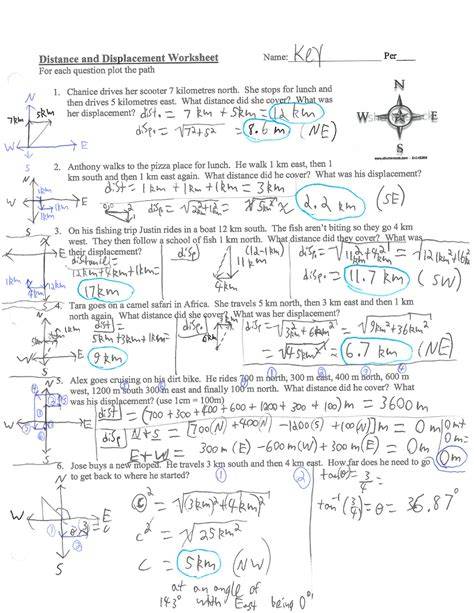 Distance and Displacement Worksheet
Name: Key Per
For each question plot the path
1. Chanice drives her scooter 7 kilometres north. She stops for lunch and
then drives 5 kilometres east. What distance did she cover? What was
her displacement? dist. = 7 km + 5km = 12 km
disp. = √7²+5² = 8.6 m (NE)
N
7km
5km
W
E
S
N
W
E
S
2. Anthony walks to the pizza place for lunch. He walk 1 km east, then 1
km south and then 1 km east again. What distance did he cover? What was his displacement?
dist = 1km + 1km + 1km = 3km
2.2 km (SE)
3. On his fishing trip Justin rides in a boat 12 km south. The fish aren't biting so they go 4 km
west. They then follow a school of fish 1 km north. What distance did they cover? What was
their displacement?
12km + 4km + 1km =
17km
disp
(12-1km)
11km
4km
disp. = 11.7 km (SW)
4. Tara goes on a camel safari in Africa. She travels 5 km north, then 3 km east and then 1 km
north again. What distance did she cover? What was her displacement?
dist =
5km + 3km + 1km
9km
disp. = √3km² + 6km² = √9km² + 36km²
= √45km² = 6.7 km (NE)
5. Alex goes cruising on his dirt bike. He rides 700 m north, 300 m east, 400 m north, 600 m
west, 1200 m south 300m east and finally 100 m north. What distance did he cover? What
was his displacement? (use 1cm = 100m)
dist = (700 + 300 + 400 + 600 + 1200 + 300 + 100) m = 3600m
disp N+S = [700(N) + 400(N) - 1200(S) + 100(N)] m = 0m
E+W = 300m(E) - 600m(W) + 300m(E) = 0m
0m
6. Jose buys a new moped. He travels 3 km south and then 4 km east. How far does he need to go
to get back to where he started?
① c² = √(3km)² + (4km)²
c² = √25km²
c = 5km (NW)
at an angle of
143° with East being 0°!
② tan(θ) = 3/4
tan⁻¹(3/4) = θ = 36.87°